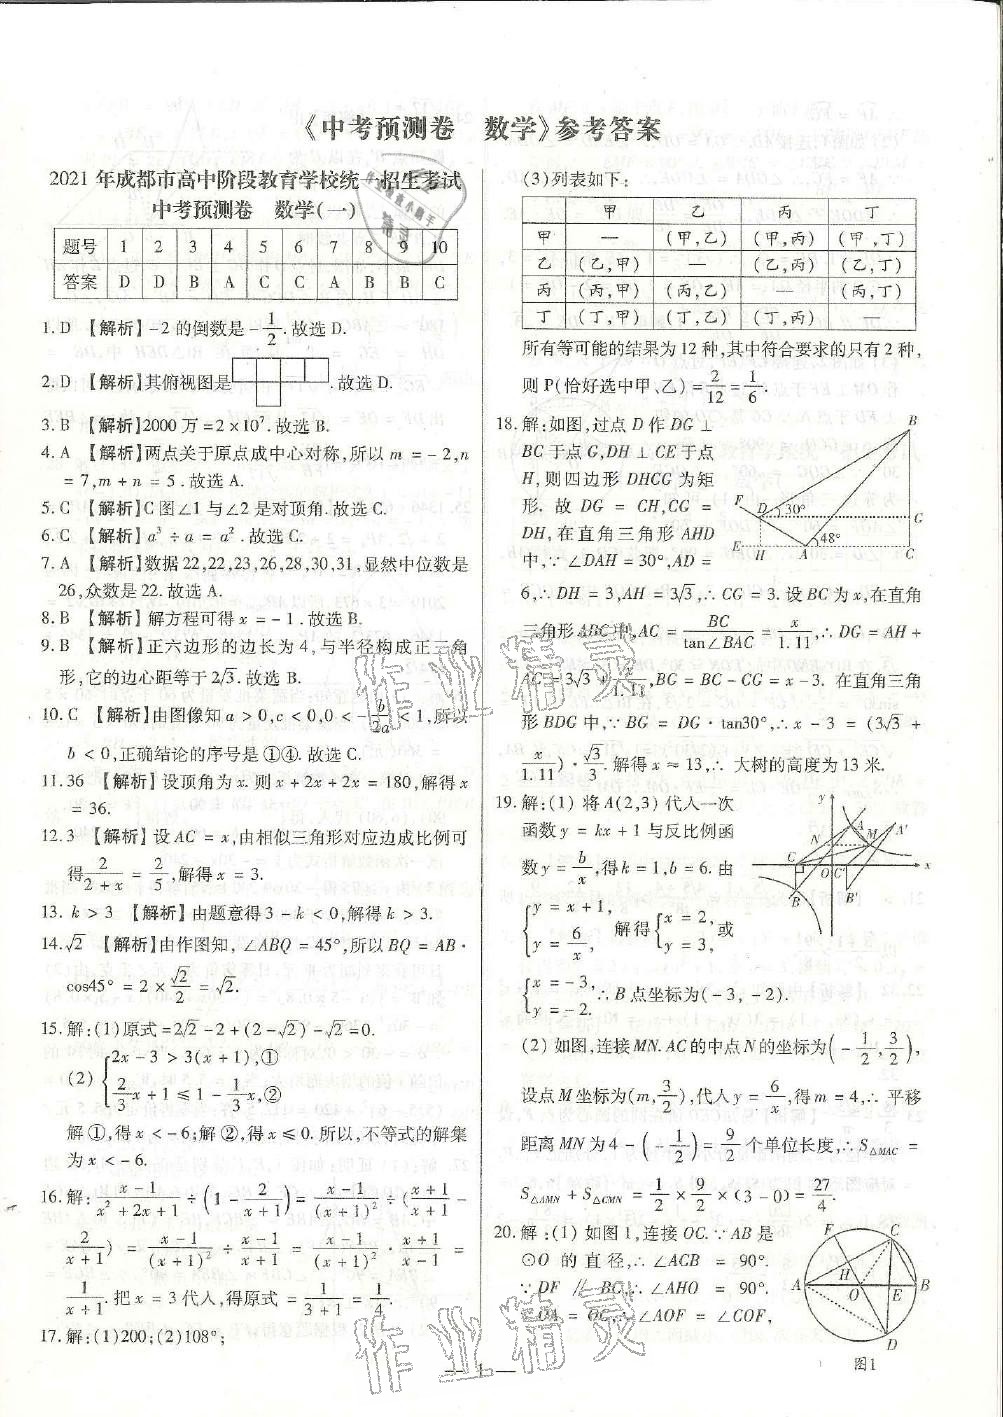 《中考预测卷 数学》参考答案
2021年成都市高中阶段教育学校统一招生考试
中考预测卷 数学(一)
题号 1 2 3 4 5 6 7 8 9 10
答案 D D B A C C A B B C
1. D 【解析】-2的倒数是-1/2.故选D.
2. D 【解析】其俯视图是 .故选D.
3. B 【解析】2000万=2×10⁷.故选B.
4. A 【解析】两点关于原点成中心对称,所以m=-2,n
=7,m+n=5.故选A.
5. C 【解析】C图∠1与∠2是对顶角.故选C.
6. C 【解析】a³÷a=a².故选C.
7. A 【解析】数据22,22,23,26,28,30,31,显然中位数是
26,众数是22.故选A.
8. B 【解析】解方程可得x=-1.故选B.
9. B 【解析】正六边形的边长为4,与半径构成正三角
形,它的边心距等于2√3.故选B.
10. C 【解析】由图像知a>0,c<0,0<-b/2a<1,所以
b<0,正确结论的序号是①④.故选C.
11. 36 【解析】设顶角为x.则x+2x+2x=180,解得x
=36.
12. 3 【解析】设AC=x,由相似三角形对应边成比例可
得2/(2+x)=2/5,解得x=3.
13. k>3 【解析】由题意得3-k<0,解得k>3.
14. √2 【解析】由作图知,∠ABQ=45°,所以BQ=AB·
cos45°=2×√2/2=√2.
15. 解:(1)原式=2√2-2+(2-√2)-√2=0.
(2){2x-3>3(x+1),①
2/3x+1≤1-x/3,②
解①,得x<-6;解②,得x≤0.所以,不等式的解集
为x<-6.
16. 解:(x-1)/(x²+2x+1)÷(1-2/(x+1))=(x-1)/(x+1)²÷((x+1)/(x+1)-
2/(x+1))=(x-1)/(x+1)²÷(x-1)/(x+1)=(x-1)/(x+1)²·(x+1)/(x-1)=
1/(x+1).把x=3代人,得原式=1/(3+1)=1/4.
17. 解:(1)200;(2)108°;
(3)列表如下:
甲 乙 丙 丁
甲 — (甲,乙) (甲,丙) (甲,丁)
乙 (乙,甲) — (乙,丙) (乙,丁)
丙 (丙,甲) (丙,乙) — (丙,丁)
丁 (丁,甲) (丁,乙) (丁,丙) —
所有等可能的结果为12种,其中符合要求的只有2种,
则P(恰好选中甲、乙)=2/12=1/6.
18. 解:如图,过点D作DG⊥
BC于点G,DH⊥CE于点
H,则四边形DHCG为矩
形.故DG=CH,CG=
DH,在直角三角形AHD
中,∵∠DAH=30°,AD=
6,∴DH=3,AH=3√3,∴CG=3.设BC为x,在直角
三角形ABC中,AC=BC/tan∠BAC=x/1.11,∴DG=AH+
AC=3√3+x/1.11,BG=BC-CG=x-3.在直角三角
形BDG中,∵BG=DG·tan30°,∴x-3=(3√3+
x/1.11)·√3/3.解得x≈13,∴大树的高度为13米.
B
F
D 30° G
E H A 48° C
19. 解:(1)将A(2,3)代人一次
函数y=kx+1与反比例函
数y=b/x,得k=1,b=6.由
{y=x+1,
y=6/x, 解得{x=2,
y=3,或
{x=-3,
y=-2. ∴B点坐标为(-3,-2).
y A A' N M C O C' x B B'
(2)如图,连接MN.AC的中点N的坐标为(-1/2,3/2),
设点M坐标为(m,3/2),代人y=6/x,得m=4,∴平移
距离MN为4-(-1/2)=9/2个单位长度,∴S△MAC=
S△AMN+S△CMN=1/2×9/2×(3-0)=27/4.
20. 解:(1)如图1,连接OC.∵AB是
⊙O的直径,∴∠ACB=90°.
∵DF∥BC,∴∠AHO=90°.
∵OA=OC,∴∠AOF=∠COF,
F C H A O E B D
图1
— 1 —
作业精灵
作业精灵